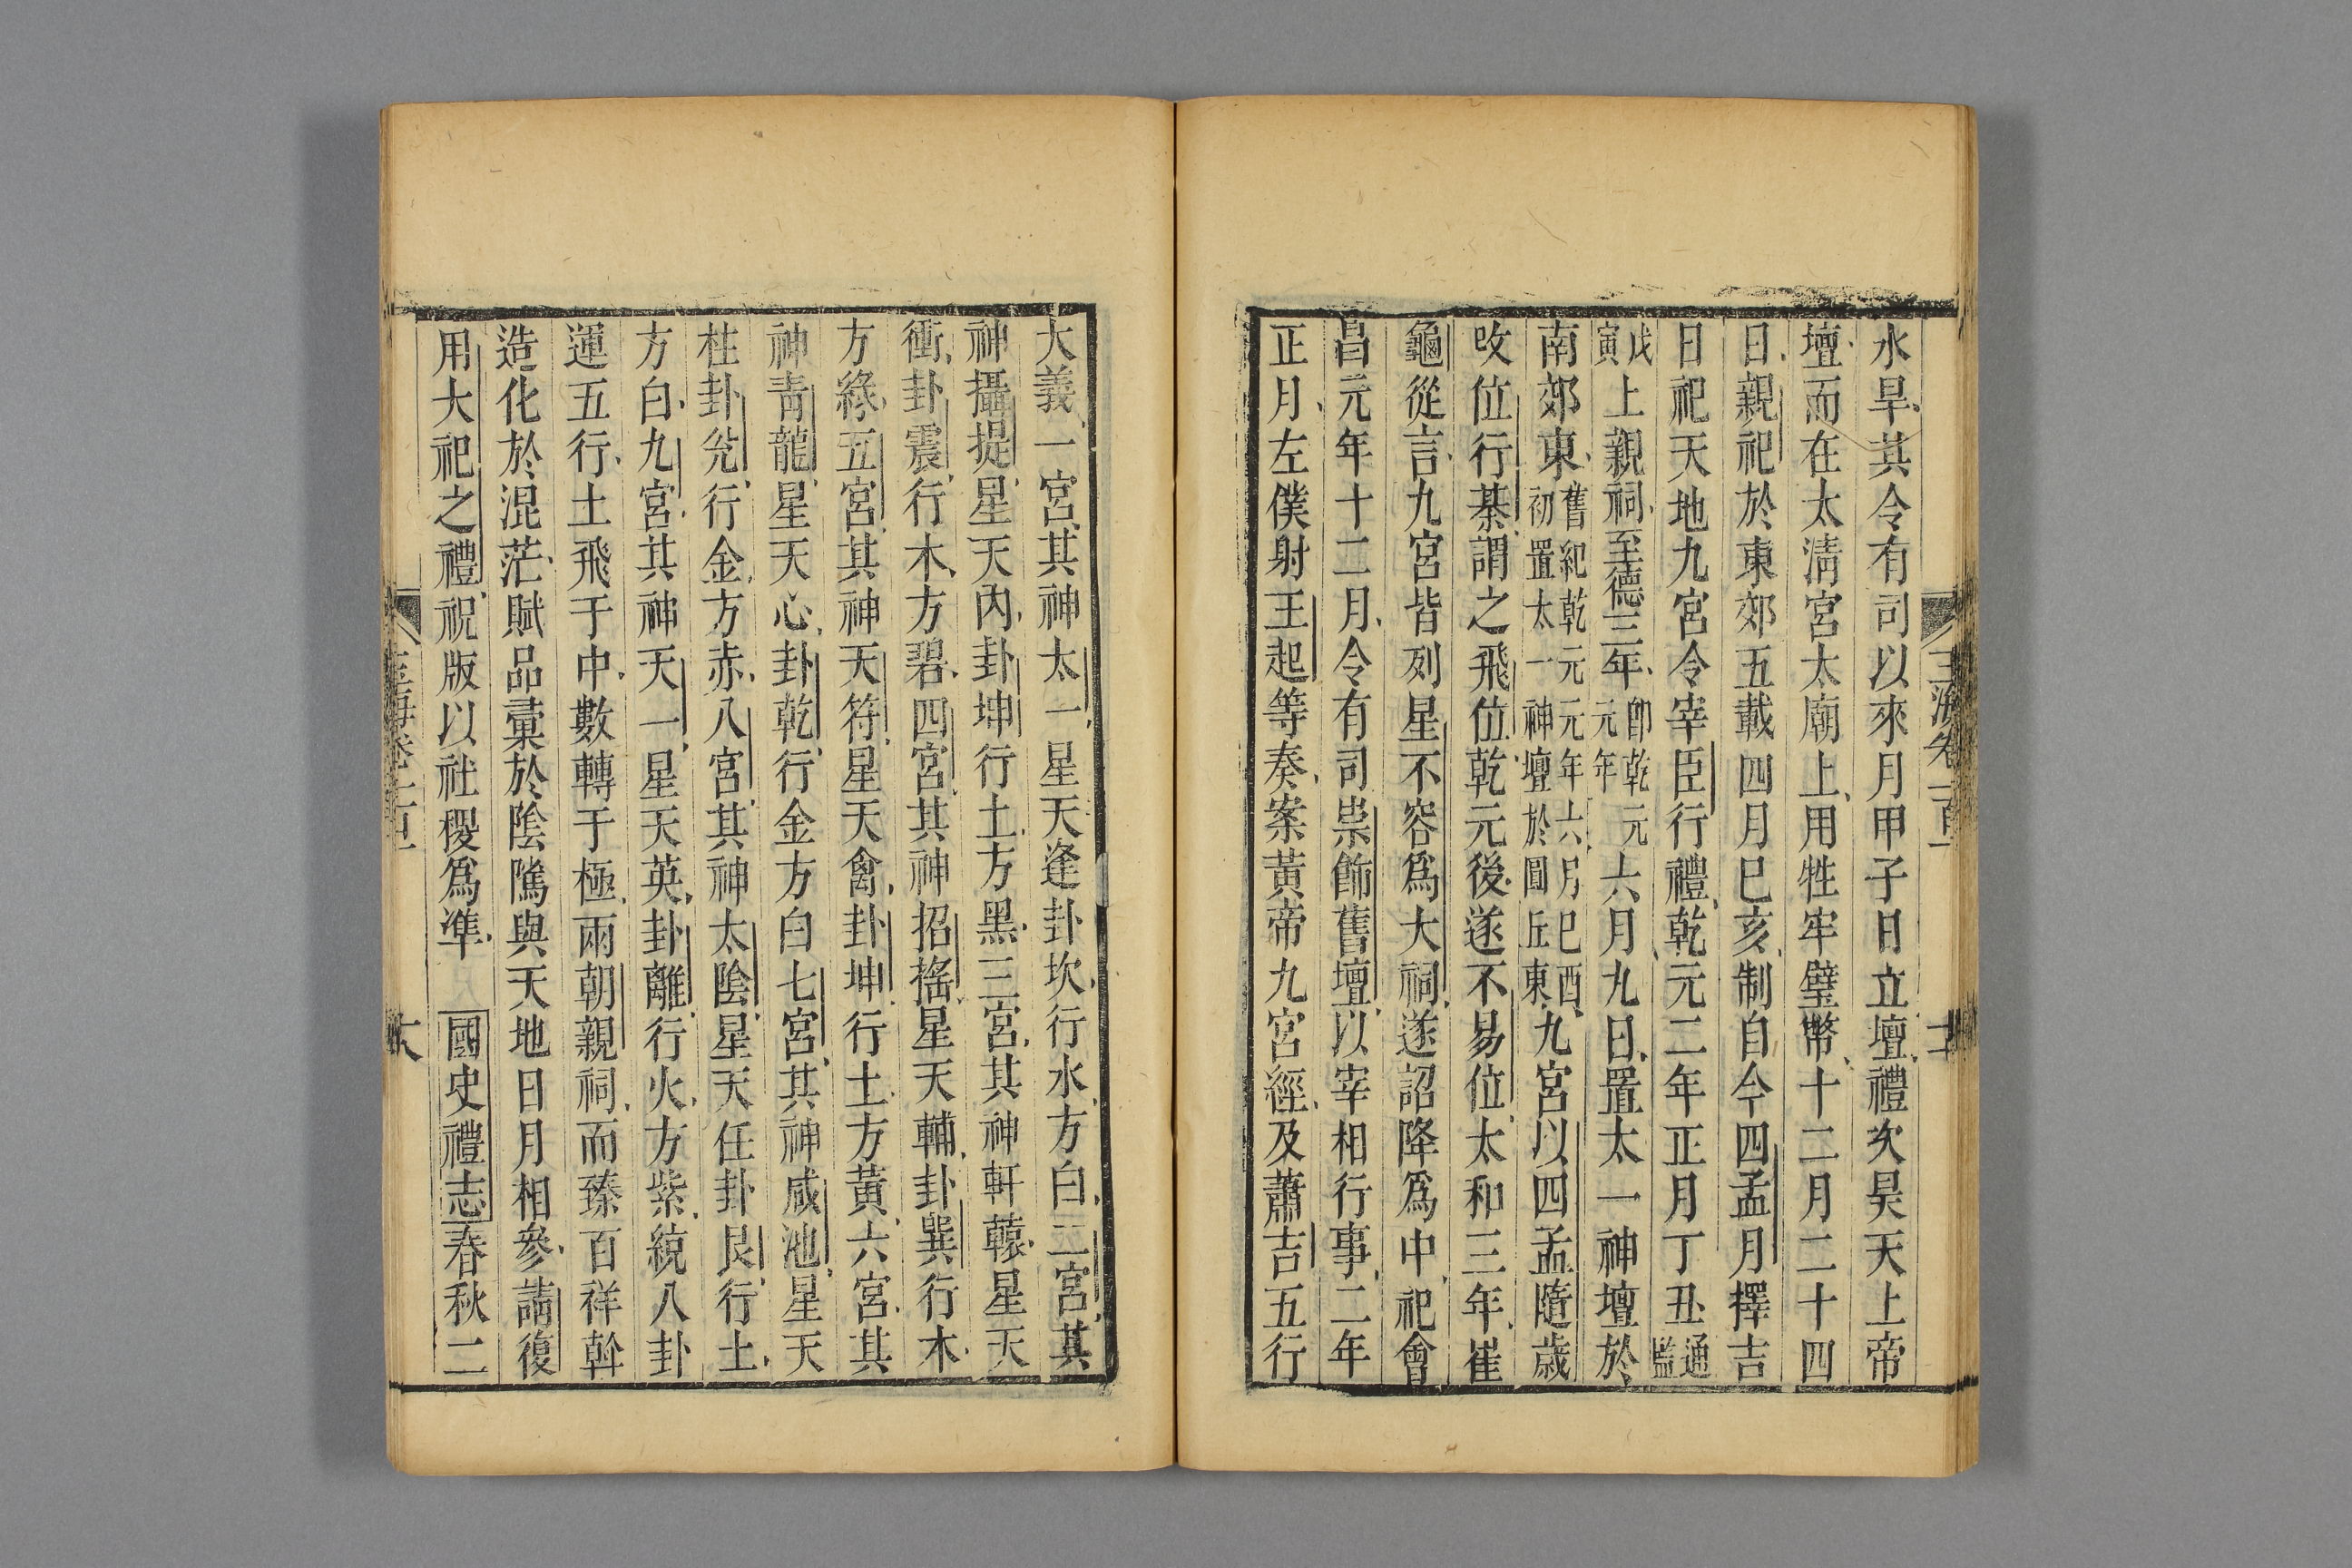 水旱其令有司以來月甲子日立壇禮次昊天上帝
壇而在太淸宮太廟上用牲牢璧幣十二月二十四
日親祀於東郊五載四月巳亥制自今四孟月擇吉
日祀天地九宮令宰臣行禮乾元二年正月丁丑通監
戊寅上親祠至德三年卽乾元元年六月九日置太一神壇於
南郊東舊紀乾元元年六月巳酉初置太一神壇於圓丘東九宮以四孟隨歲
改位行棊謂之飛位乾元後遂不易位太和三年崔
龜從言九宮皆列星不容爲大祠遂詔降爲中祀會
昌元年十二月令有司崇飾舊壇以宰相行事二年
正月左僕射王起等奏案黃帝九宮經及蕭吉五行
大義一宮其神太一星天逢卦坎行水方白二宮其
神攝提星天內卦坤行土方黑三宮其神軒轅星天
衝卦震行木方碧四宮其神招搖星天輔卦巽行木
方綠五宮其神天符星天禽卦坤行土方黃六宮其
神靑龍星天心卦乾行金方白七宮其神咸池星天
柱卦兌行金方赤八宮其神太陰星天任卦艮行土
方白九宮其神天一星天英卦離行火方紫統八卦
運五行土飛于中數轉于極兩朝親祠而臻百祥斡
造化於混茫賦品彙於陰隲與天地日月相參請復
用大祀之禮祝版以社稷爲準 國史禮志春秋二